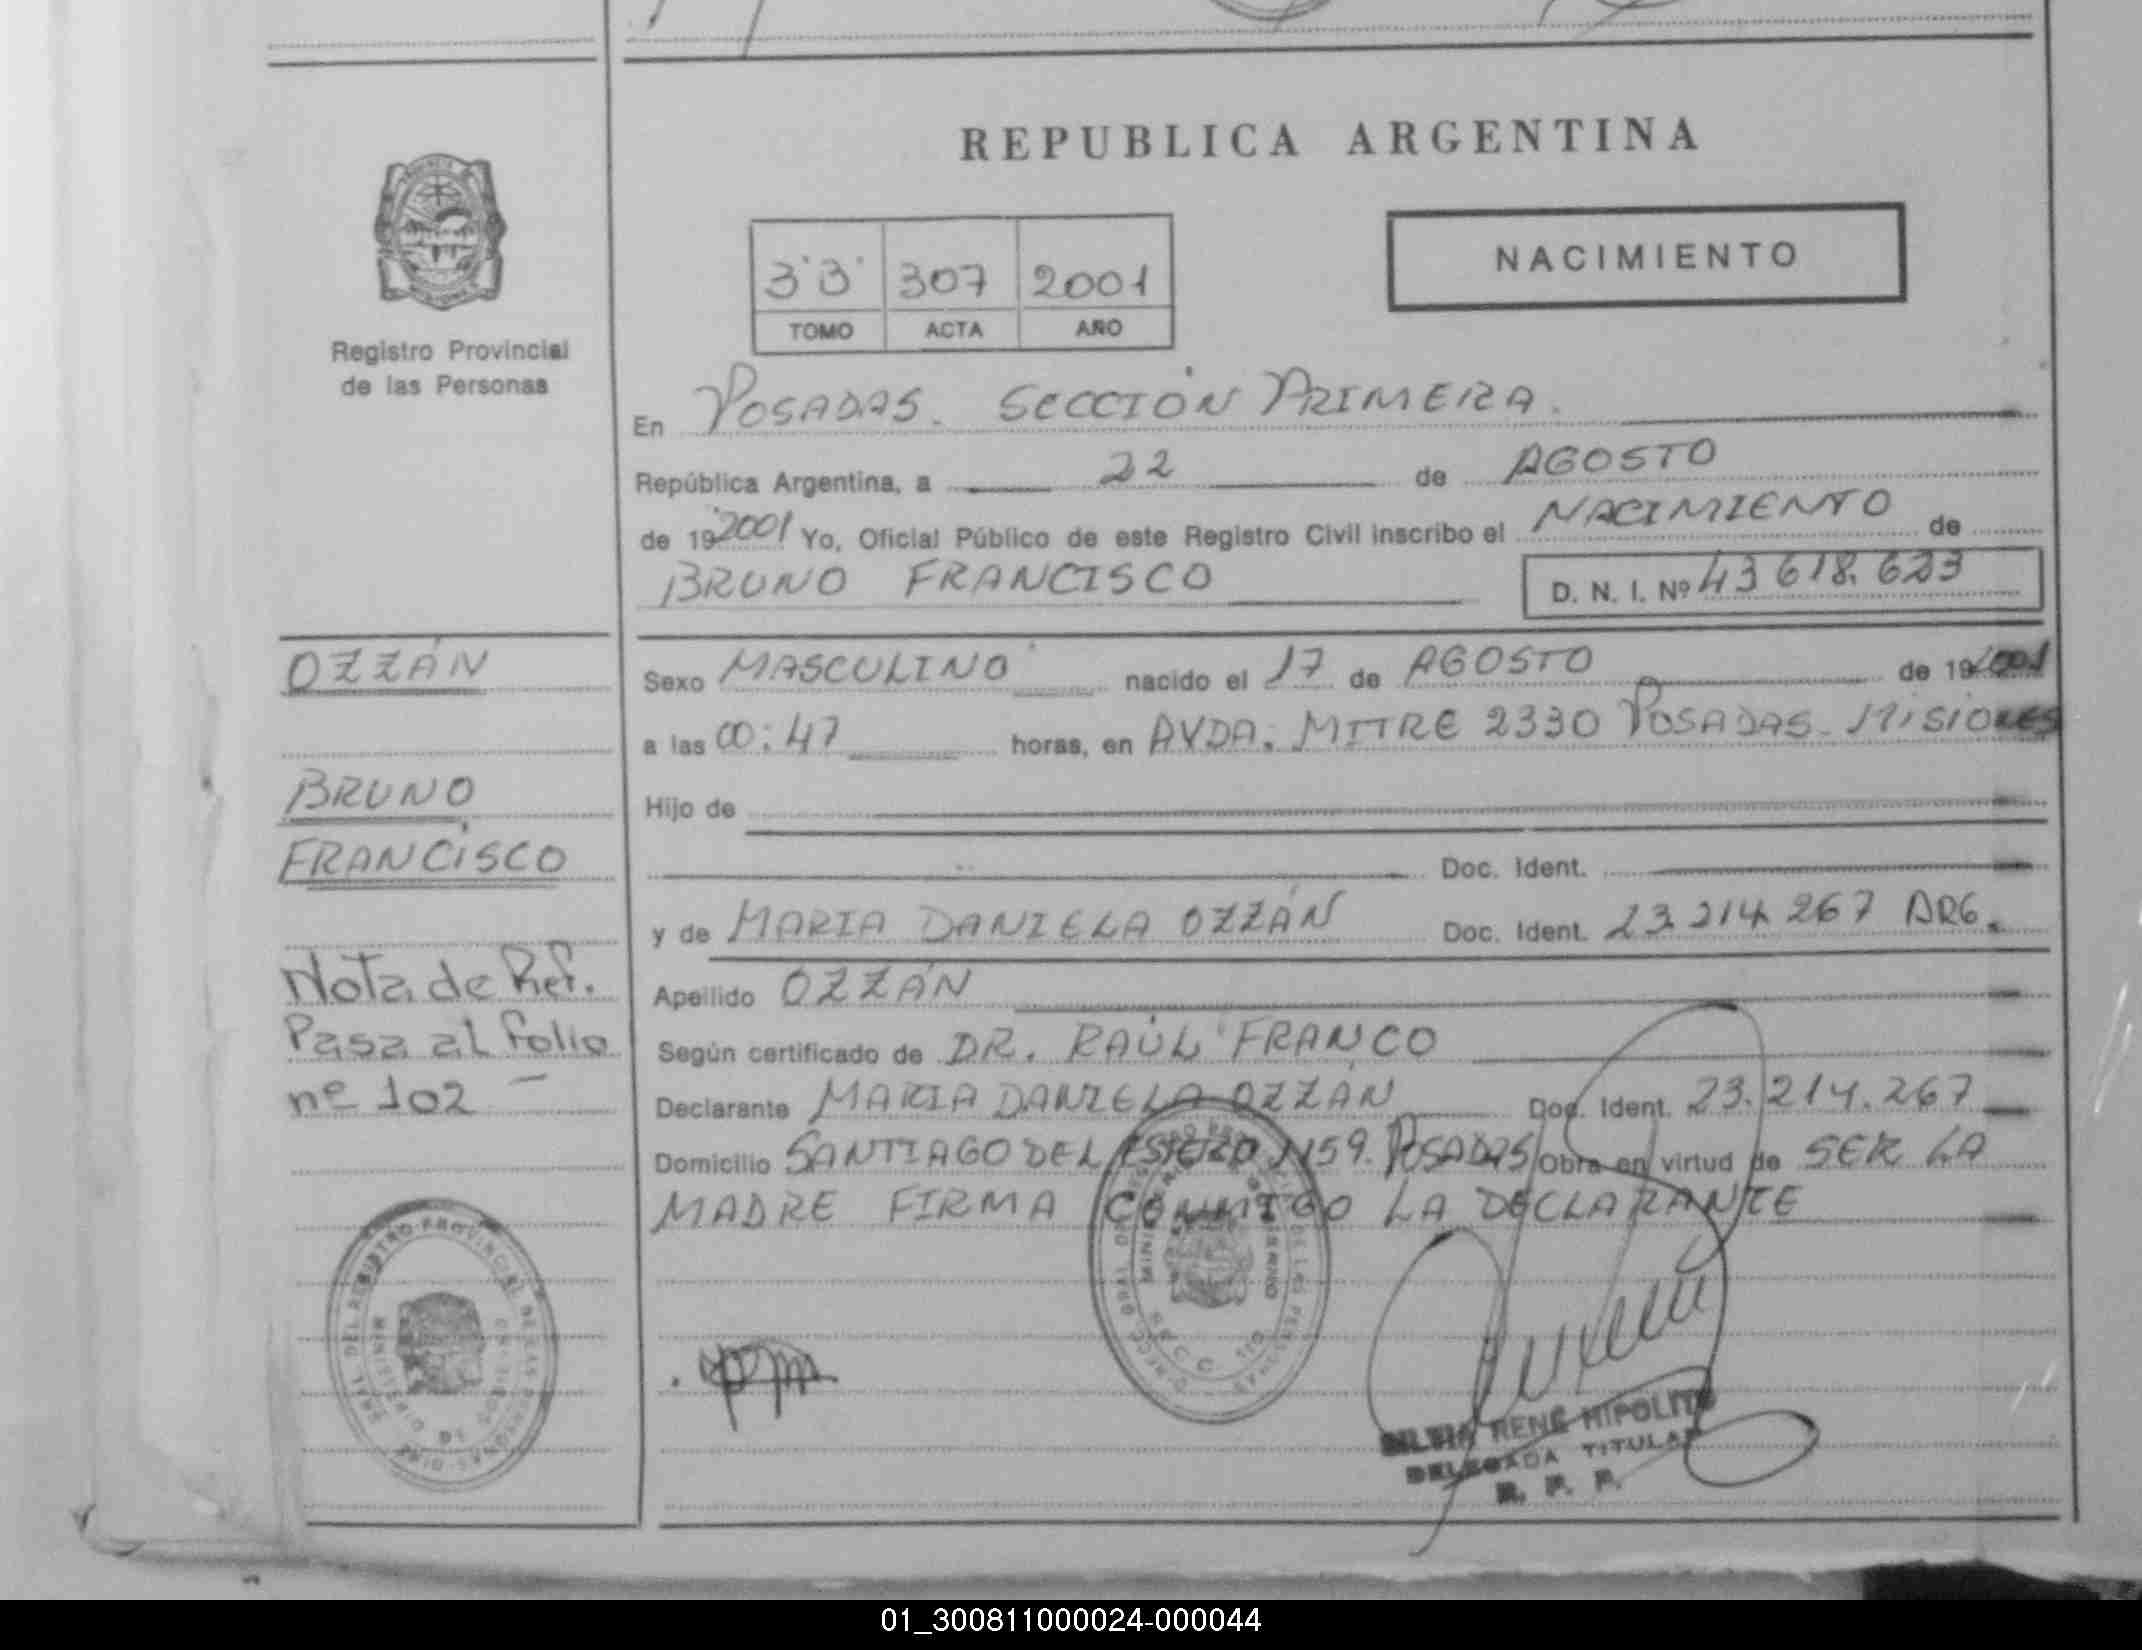 REPUBLICA ARGENTINA
NACIMIENTO
3'3' 307 2001
TOMO ACTA AÑO
Registro Provincial
de las Personas
En POSADAS. SECCIÓN PRIMERA.
República Argentina, a 22 de AGOSTO
de 19 2001 Yo, Oficial Público de este Registro Civil inscribo el NACIMIENTO de
BRUNO FRANCISCO D. N. I. Nº 43 618. 623
OZZÁN
Sexo MASCULINO nacido el 17 de AGOSTO de 19 2001
a las 00:47 horas, en AVDA. MITRE 2330 POSADAS. MISIONES
BRUNO
Hijo de
FRANCISCO
Doc. Ident.
y de MARIA DANIELA OZZÁN Doc. Ident. 23 214 267 ARG.
Nota de Ref.
Pasa al folio
nº 102 -
Apellido OZZÁN
Según certificado de DR. RAÚL FRANCO
Declarante MARIA DANIELA OZZÁN Doc. Ident. 23.214.267
Domicilio SANTIAGO DEL ESTERO 1159. POSADAS Obra en virtud de SER LA
MADRE FIRMA CONMIGO LA DECLARANTE
SILVIA RENE HIPOLITO
DELEGADA TITULAR
R. P. P.
01_300811000024-000044